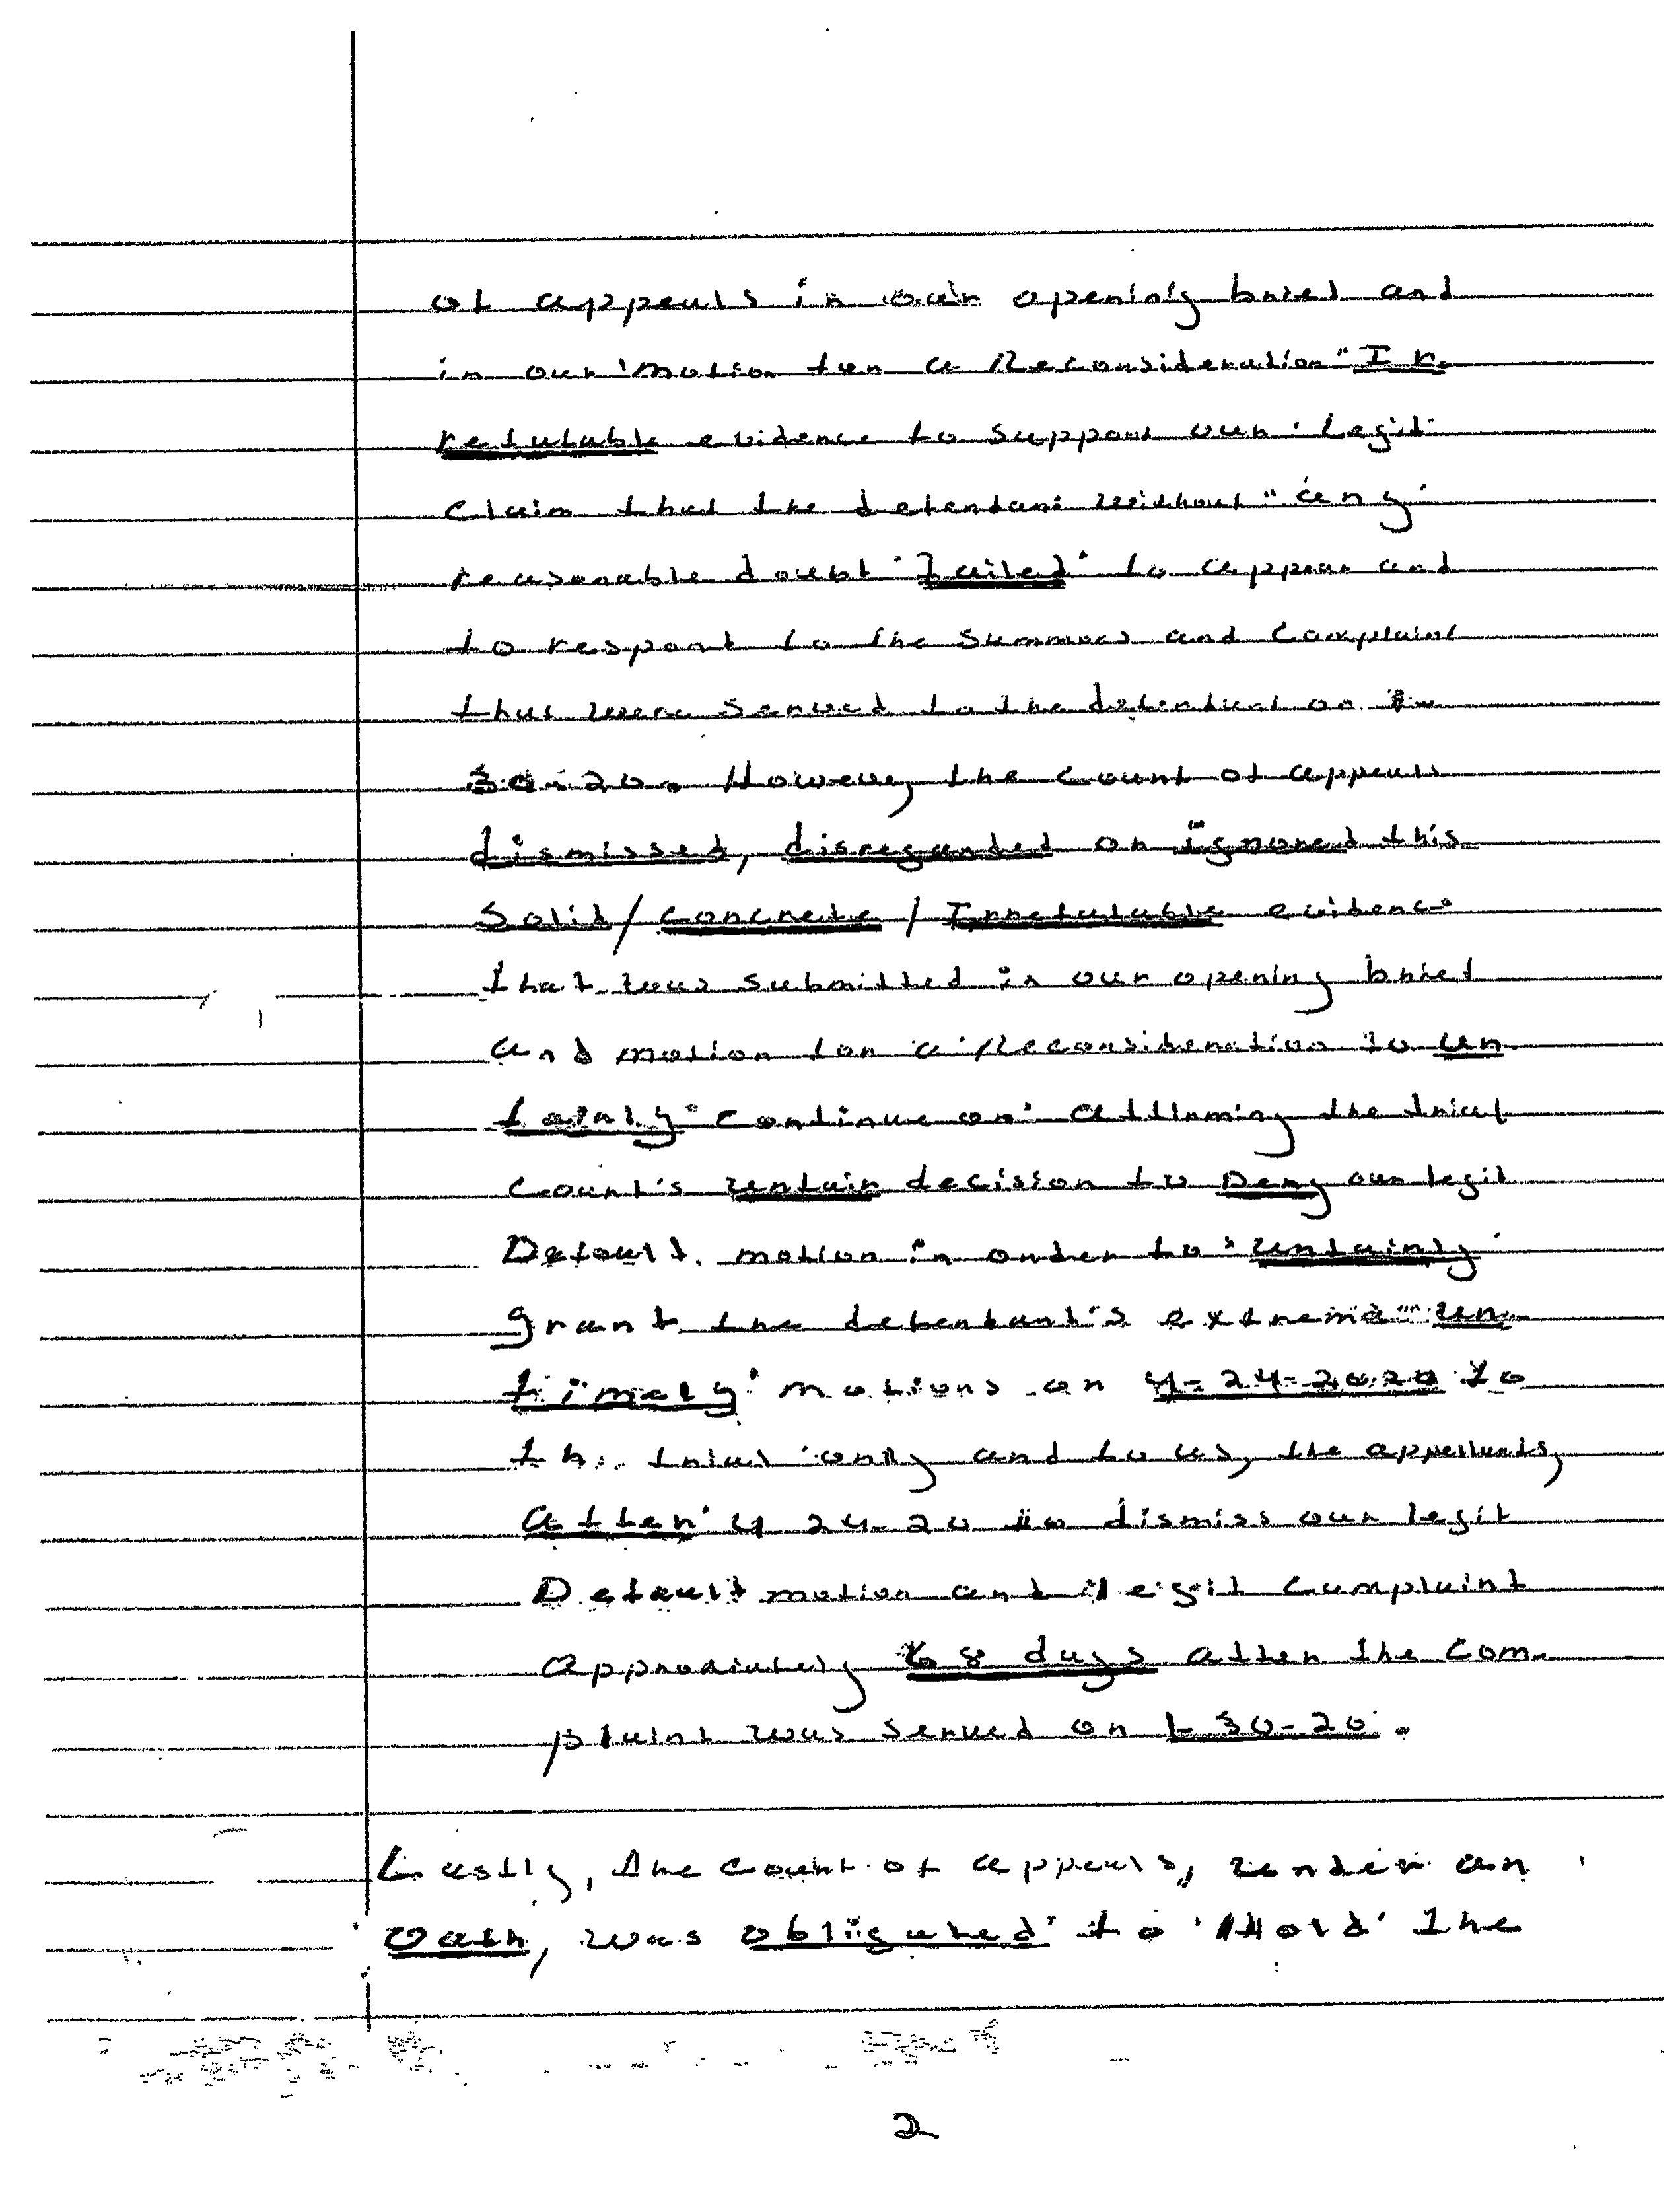 of appeals in our opening brief and
in our "motion for a Reconsideration" Ir-
refutable evidence to support our "legit"
claim that the defendant without "any"
reasonable doubt "failed" to appear and
to respont to the summons and complaint
that were served to the defendant on
30-20. However, the Court of appeals
dismissed, disregarded or "ignored this
Solid/Concrete/Irrefutable evidence
that was submitted in our opening brief
and motion for a Reconsideration to un
fairly "continue on" affirming the trial
court's unfair decision to Deny our legit
Default motion in order to "unfairly"
grant the defendant's extreme "un-
timely" motions on 4-24-2020 to
the trial only and to us, the appellants,
after 4 24-20 to dismiss our legit
Default motion and legit complaint
approxiately 68 days after the com-
plaint was served on 1-30-20.
Lastly, the Court of appeals, under an
Oath, was obligated to "Hold" the
2